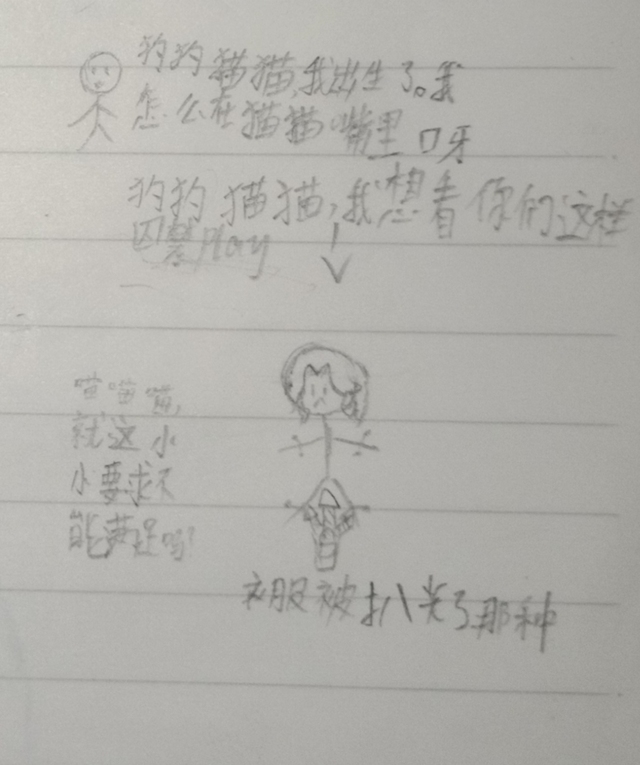 狗狗猫猫,我出生了。我
怎么在猫猫嘴里口牙
狗狗猫猫,我想看你们这样
囚禁play
喵喵喵,
就这小
小要求不
能满足吗?
衣服被扒光了那种